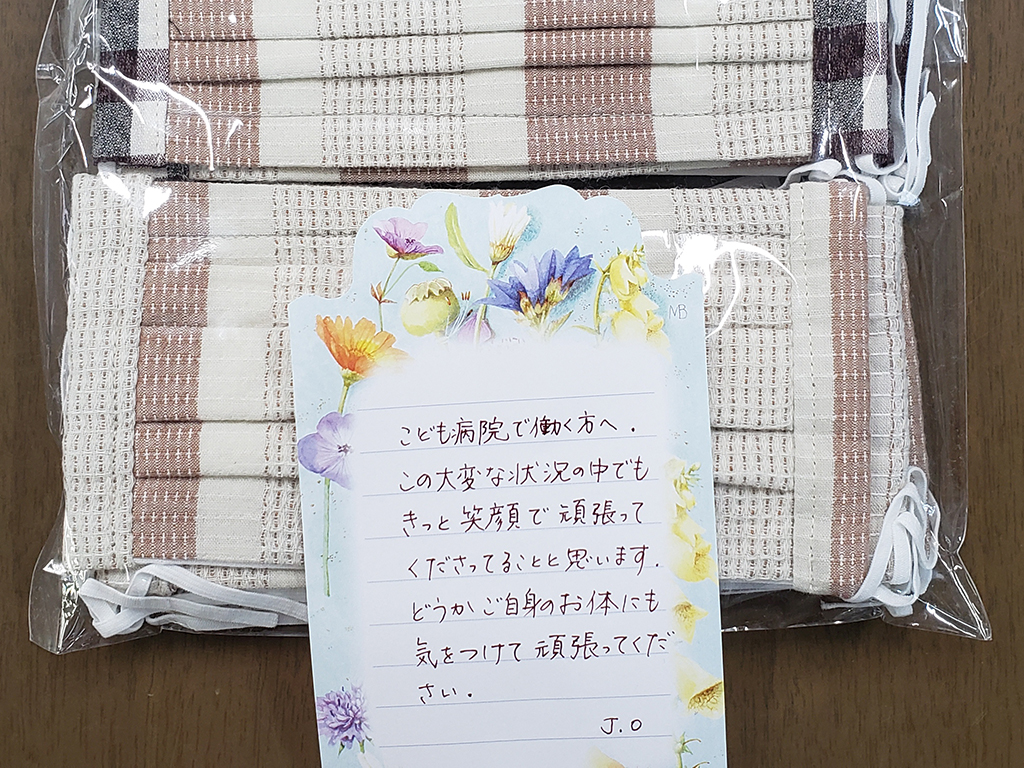 MB
こども病院で働く方へ.
この大変な状況の中でも
きっと笑顔で頑張って
くださってることと思います.
どうかご自身のお体にも
気をつけて頑張ってくだ
さい.
J.O